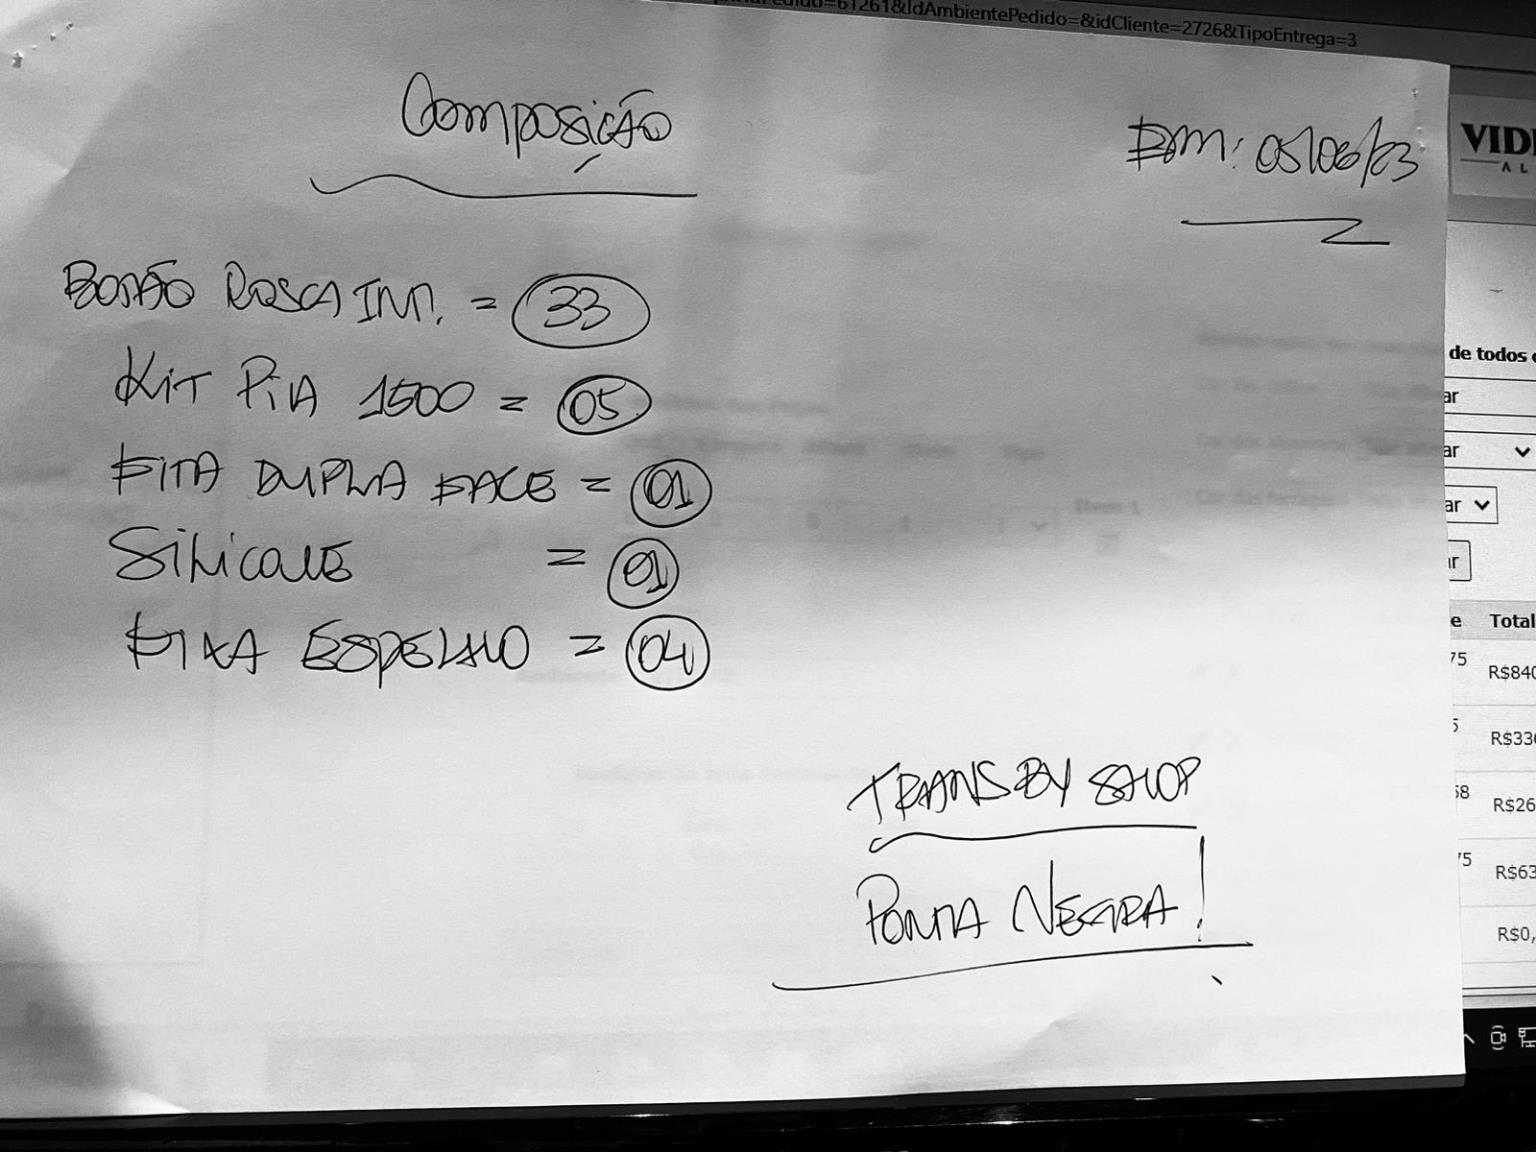 pedido=61261&IdAmbientePedido=&idCliente=2726&TipoEntrega=3
Composição
Em: 05/06/23
VID
AL
BOTÃO ROSCA INT. = 33
KIT PIA 1500 = 05
FITA DUPLA FACE = 01
SILICONE = 01
FIXA ESPELHO = 04
TRANSBY SHOP
PONTA NEGRA!
de todos
ar
ar
ar
ar
e Total
75 R$840
5 R$330
58 R$26
75 R$63
R$0,